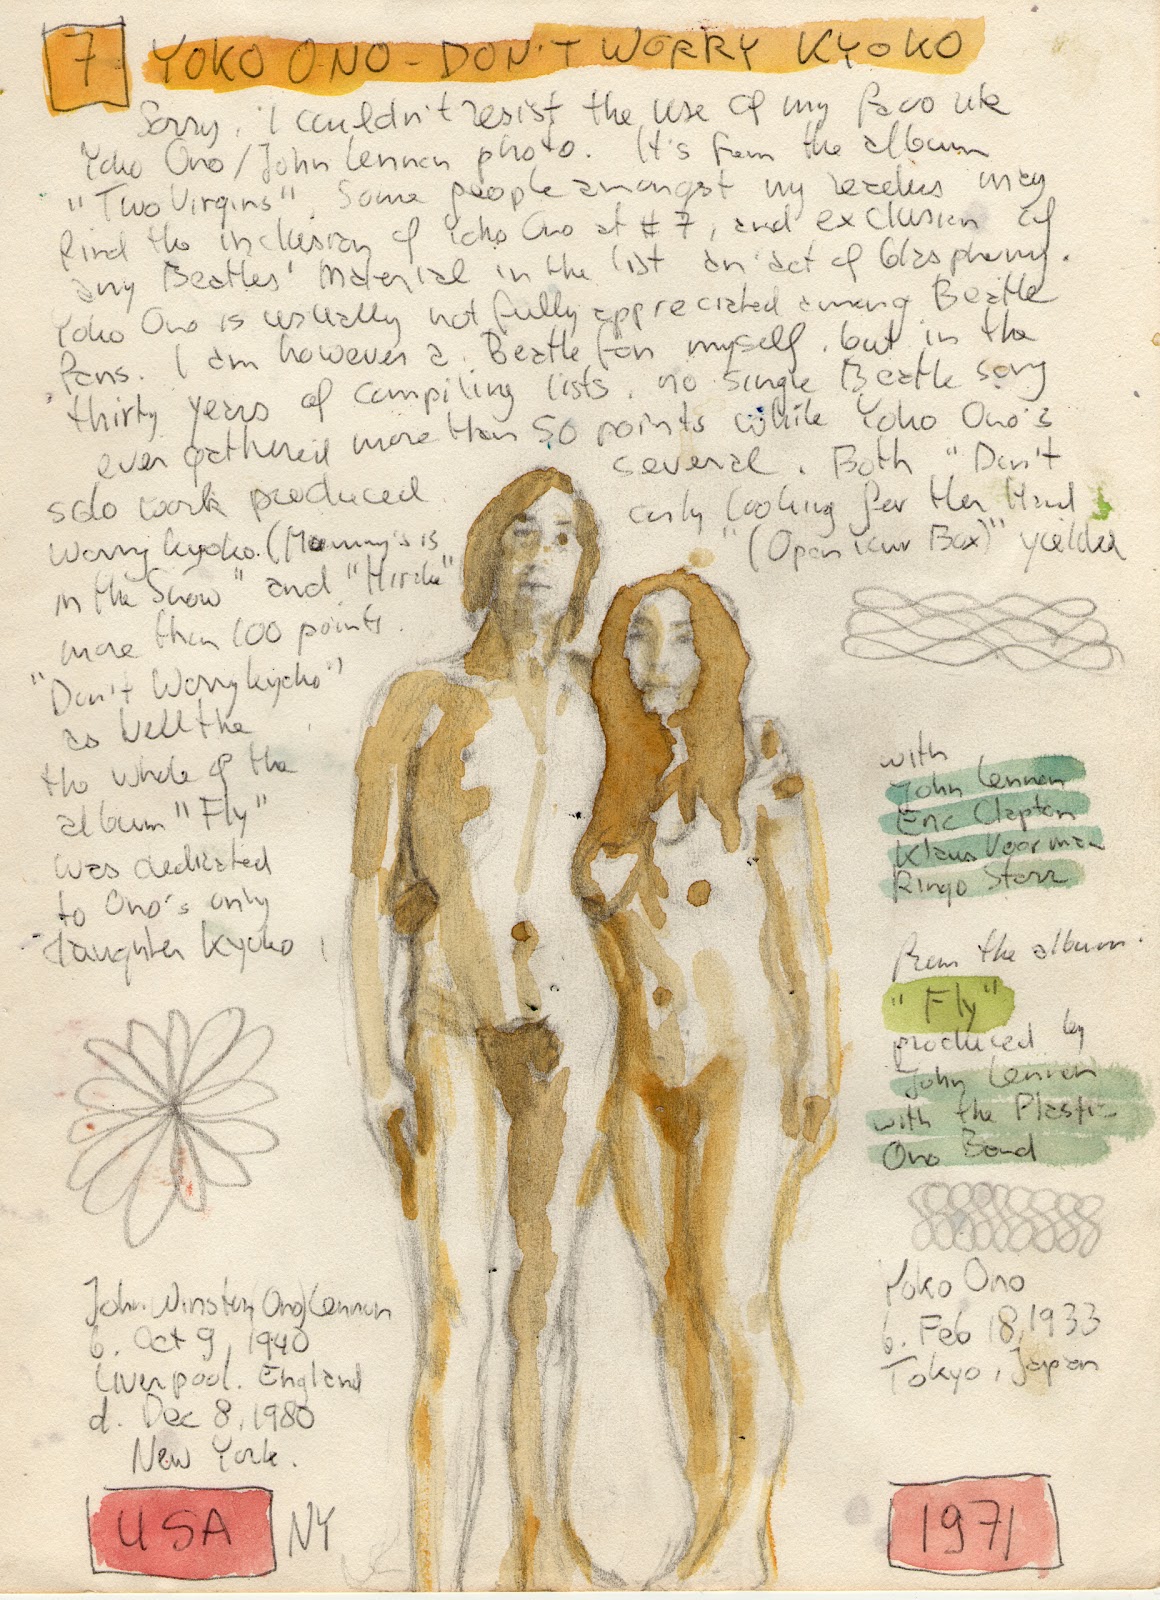 7 YOKO ONO - DON'T WORRY KYOKO
Sorry, i couldn't resist the use of my favorite
Yoko Ono/John Lennon photo. It's from the album
"Two Virgins". Some people amongst my readers may
find the inclusion of Yoko Ono at #7, and exclusion of
any Beatles' Material in the list an act of blasphemy.
Yoko Ono is usually not fully appreciated among Beatle
fans. I am however a Beatle fan myself, but in the
thirty years of compiling lists, no single Beatle song
ever gathered more than 50 points while Yoko Ono's
solo work produced several. Both "Don't
Worry Kyoko (Mommy's is only looking for Her Hand
in the Snow" and "Hirake" "(Open Your Box)" yielded
more than 100 points.
"Don't Worry Kyoko"
as well the
the whole of the
album "Fly"
was dedicated
to Ono's only
daughter Kyoko
with
John Lennon
Eric Clapton
Klaus Voorman
Ringo Starr
from the album
"Fly"
produced by
John Lennon
with the Plastic
Ono Band
John Winston (Ono) Lennon
b. Oct 9, 1940
Liverpool. England
d. Dec 8, 1980
New York.
Yoko Ono
b. Feb 18, 1933
Tokyo, Japan
USA NY
1971